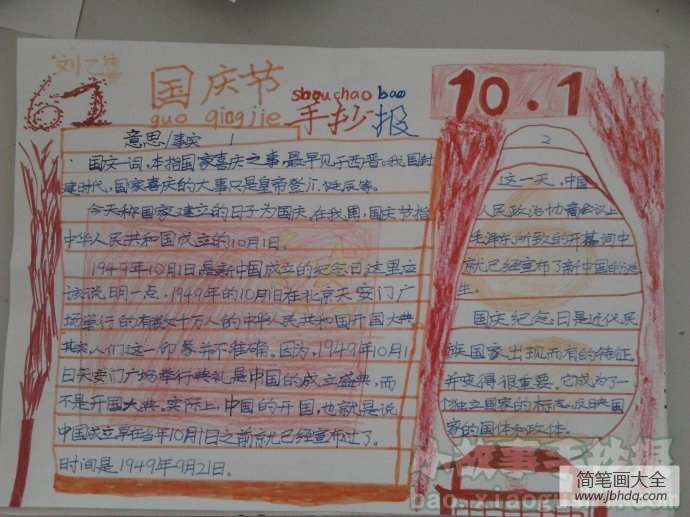 刘乙
62
国庆节
guo qing jie
shou chao bao
手抄报
10.1
意思/事实 1
国庆一词，本指国家喜庆之事，最早见于西晋。我国封
建时代，国家喜庆的大事只是皇帝登、诞辰等。
今天称国家建立的日子为国庆。在我国，国庆节指
中华人民共和国成立的10月1日。
1949年10月1日是新中国成立的纪念日。这里应
该说明一点，1949年的10月1日在北京天安门广
场举行的有数十万人的中华人民共和国开国大典。
其实，人们这一印象并不准确。因为，1949年10月1
日天安门广场举行典礼是中国的成立盛典，而
不是开国大典。实际上，中国的开国，也就是说
中国成立早在当年10月1日之前就已经宣布过了。
时间是1949年9月21日。
2
这一天，中国
人民政治协商会议上
毛泽东所致的开幕词中
就已经宣布了新中国的诞
生。
国庆纪念日是近代民
族国家出现而有的特征
并变得很重要。它成为了一
个独立国家的标志，反映国
家的国体和政体。
小故事手抄报
bao.xiaogushi.com
简笔画大全
www.jbhdq.com